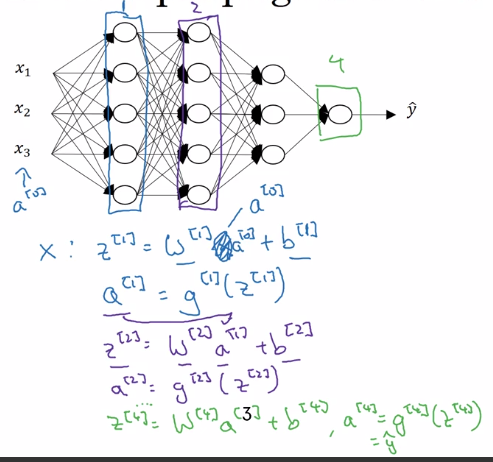 1 2
4
x₁
x₂
x₃
ŷ
a^[0]
a^[0]
x : z^[1] = W^[1] a^[0] + b^[1]
a^[1] = g^[1](z^[1])
z^[2] = W^[2] a^[1] + b^[2]
a^[2] = g^[2](z^[2])
....
z^[4] = W^[4] a^[3] + b^[4] , a^[4] = g^[4](z^[4])
= ŷ